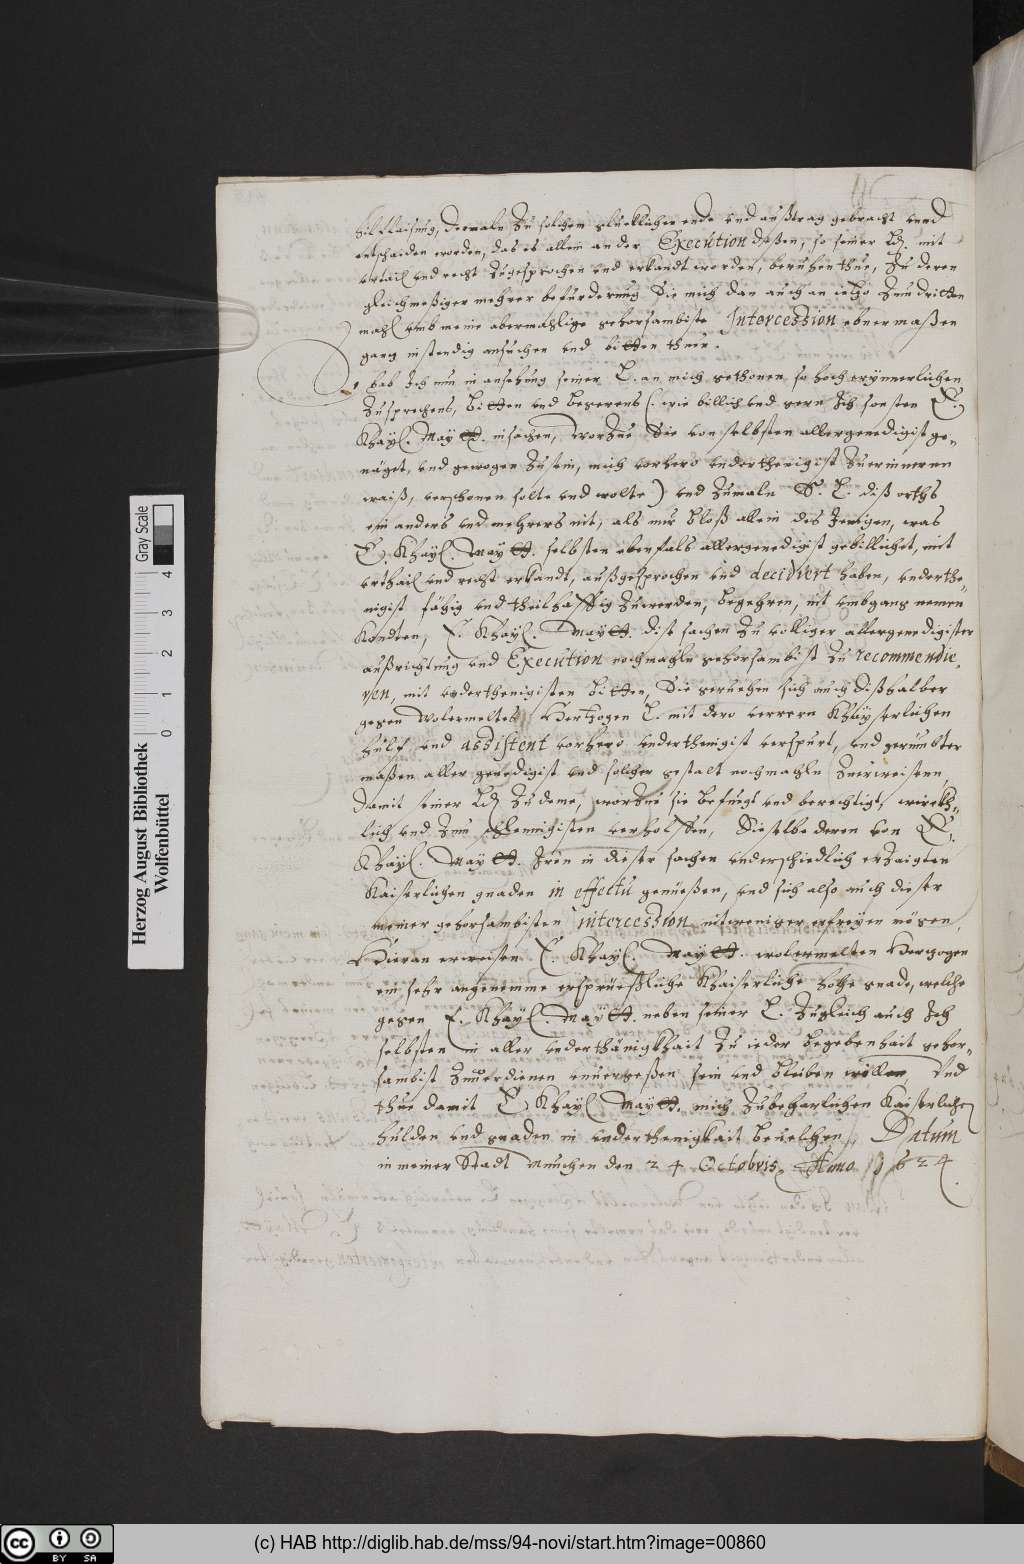 hilfflaistung, dermaln Zu solchem glucklichen ende vnd außtrag gebracht vnnd
entschaiden worden, das es allein an der Execution deßen, so seiner Ld. mit
vrtail vnd recht Zugesprochen vnd erkandt worden, beruhen thue, Zu deren
gleichmeßiger mehrer befürderung Sie mich dan auch an ietzo Zum dritten
mahl vmb meine abermahlige gehorsambiste Intercession ebnermaßen
ganz instendig ansuchen vnd bitten thuen.
hab Ich nun in ansehung seiner L. an mich gethonen so hoch erynnerlichen
Zusprechens, bitten vnd begerens (: wie billich vnd gern Ich sonsten E.
Khayl. May tt. in sachen, worZue Sie von selbsten allergenedigist ge„
naiget, vnd gewogen Zu sein, mich vorhero vnderthenigist Zuerinneren
waiß, verschonen solte vnd wolte) vnd Zumaln S. L. diß orths
ein anders vnd mehrers nit, als nur bloß allein des Jenigen, was
E. Khayl. May tt. selbsten ebenfals allergenedigist gebillichet, mit
vrthail vnd recht erkandt, außgesprochen vnd decidiert haben, vnderthe„
nigist fähig vnd theilhafftig Zuwerden, begehren, nit vmbgang nemen
Kondten, E. Khayl. May tt. dise sachen Zu völliger allergenedigister
außrichtung vnd Execution nochmahln gehorsambist Zu recommendie„
ren, mit vnderthenigisten bitten, Sie geruehen sich auch dißhalber
gegen wolermeltes Hertzogen L. mit dero verrern Khayserlichen
hülf vnd assistent vorhero vnderthenigist verspürt, vnd gerümbter
maßen aller genedigist vnd solcher gestalt nochmahln Zuerweisenn,
damit seiner Ld. Zu deme, worZue sie befuegt vnd berechtigt, würckh„
lich vnd Zum schleinigisten verholffen, Dieselbe deren von E.
Khayl. May tt. Iren in dieser sachen vnderschiedlich erZaigten
Kaiserlichen gnaden in effectu genueßen, vnd sich also auch dieser
meiner gehorsambisten intercession nitweniger erfreyen mögen,
Hieran erweisen E. Khayl. May tt. wolermelten Herzogen
ein sehr angenemme ersprüeßliche Khaiserliche hohe gnade, welche
gegen E. Khayl. May tt. neben seiner L. Zugleich auch Ich
selbsten in aller vnderthänigkhait Zu ieder begebenhait gehor„
sambist Zuuerdienen vnuergeßen sein vnd bleiben wüllen Vnd
thue damit E. Khayl. May tt. mich Zubeharlichen Kaiserlichen
hulden vnd gnaden in vnderthenigkait beuelchen. Datum
in meiner Stadt München den 24 Octobris, Anno 1624.
Herzog August Bibliothek
Wolfenbüttel
Gray Scale
0 1 2 3 4
cc BY SA
(c) HAB http://diglib.hab.de/mss/94-novi/start.htm?image=00860